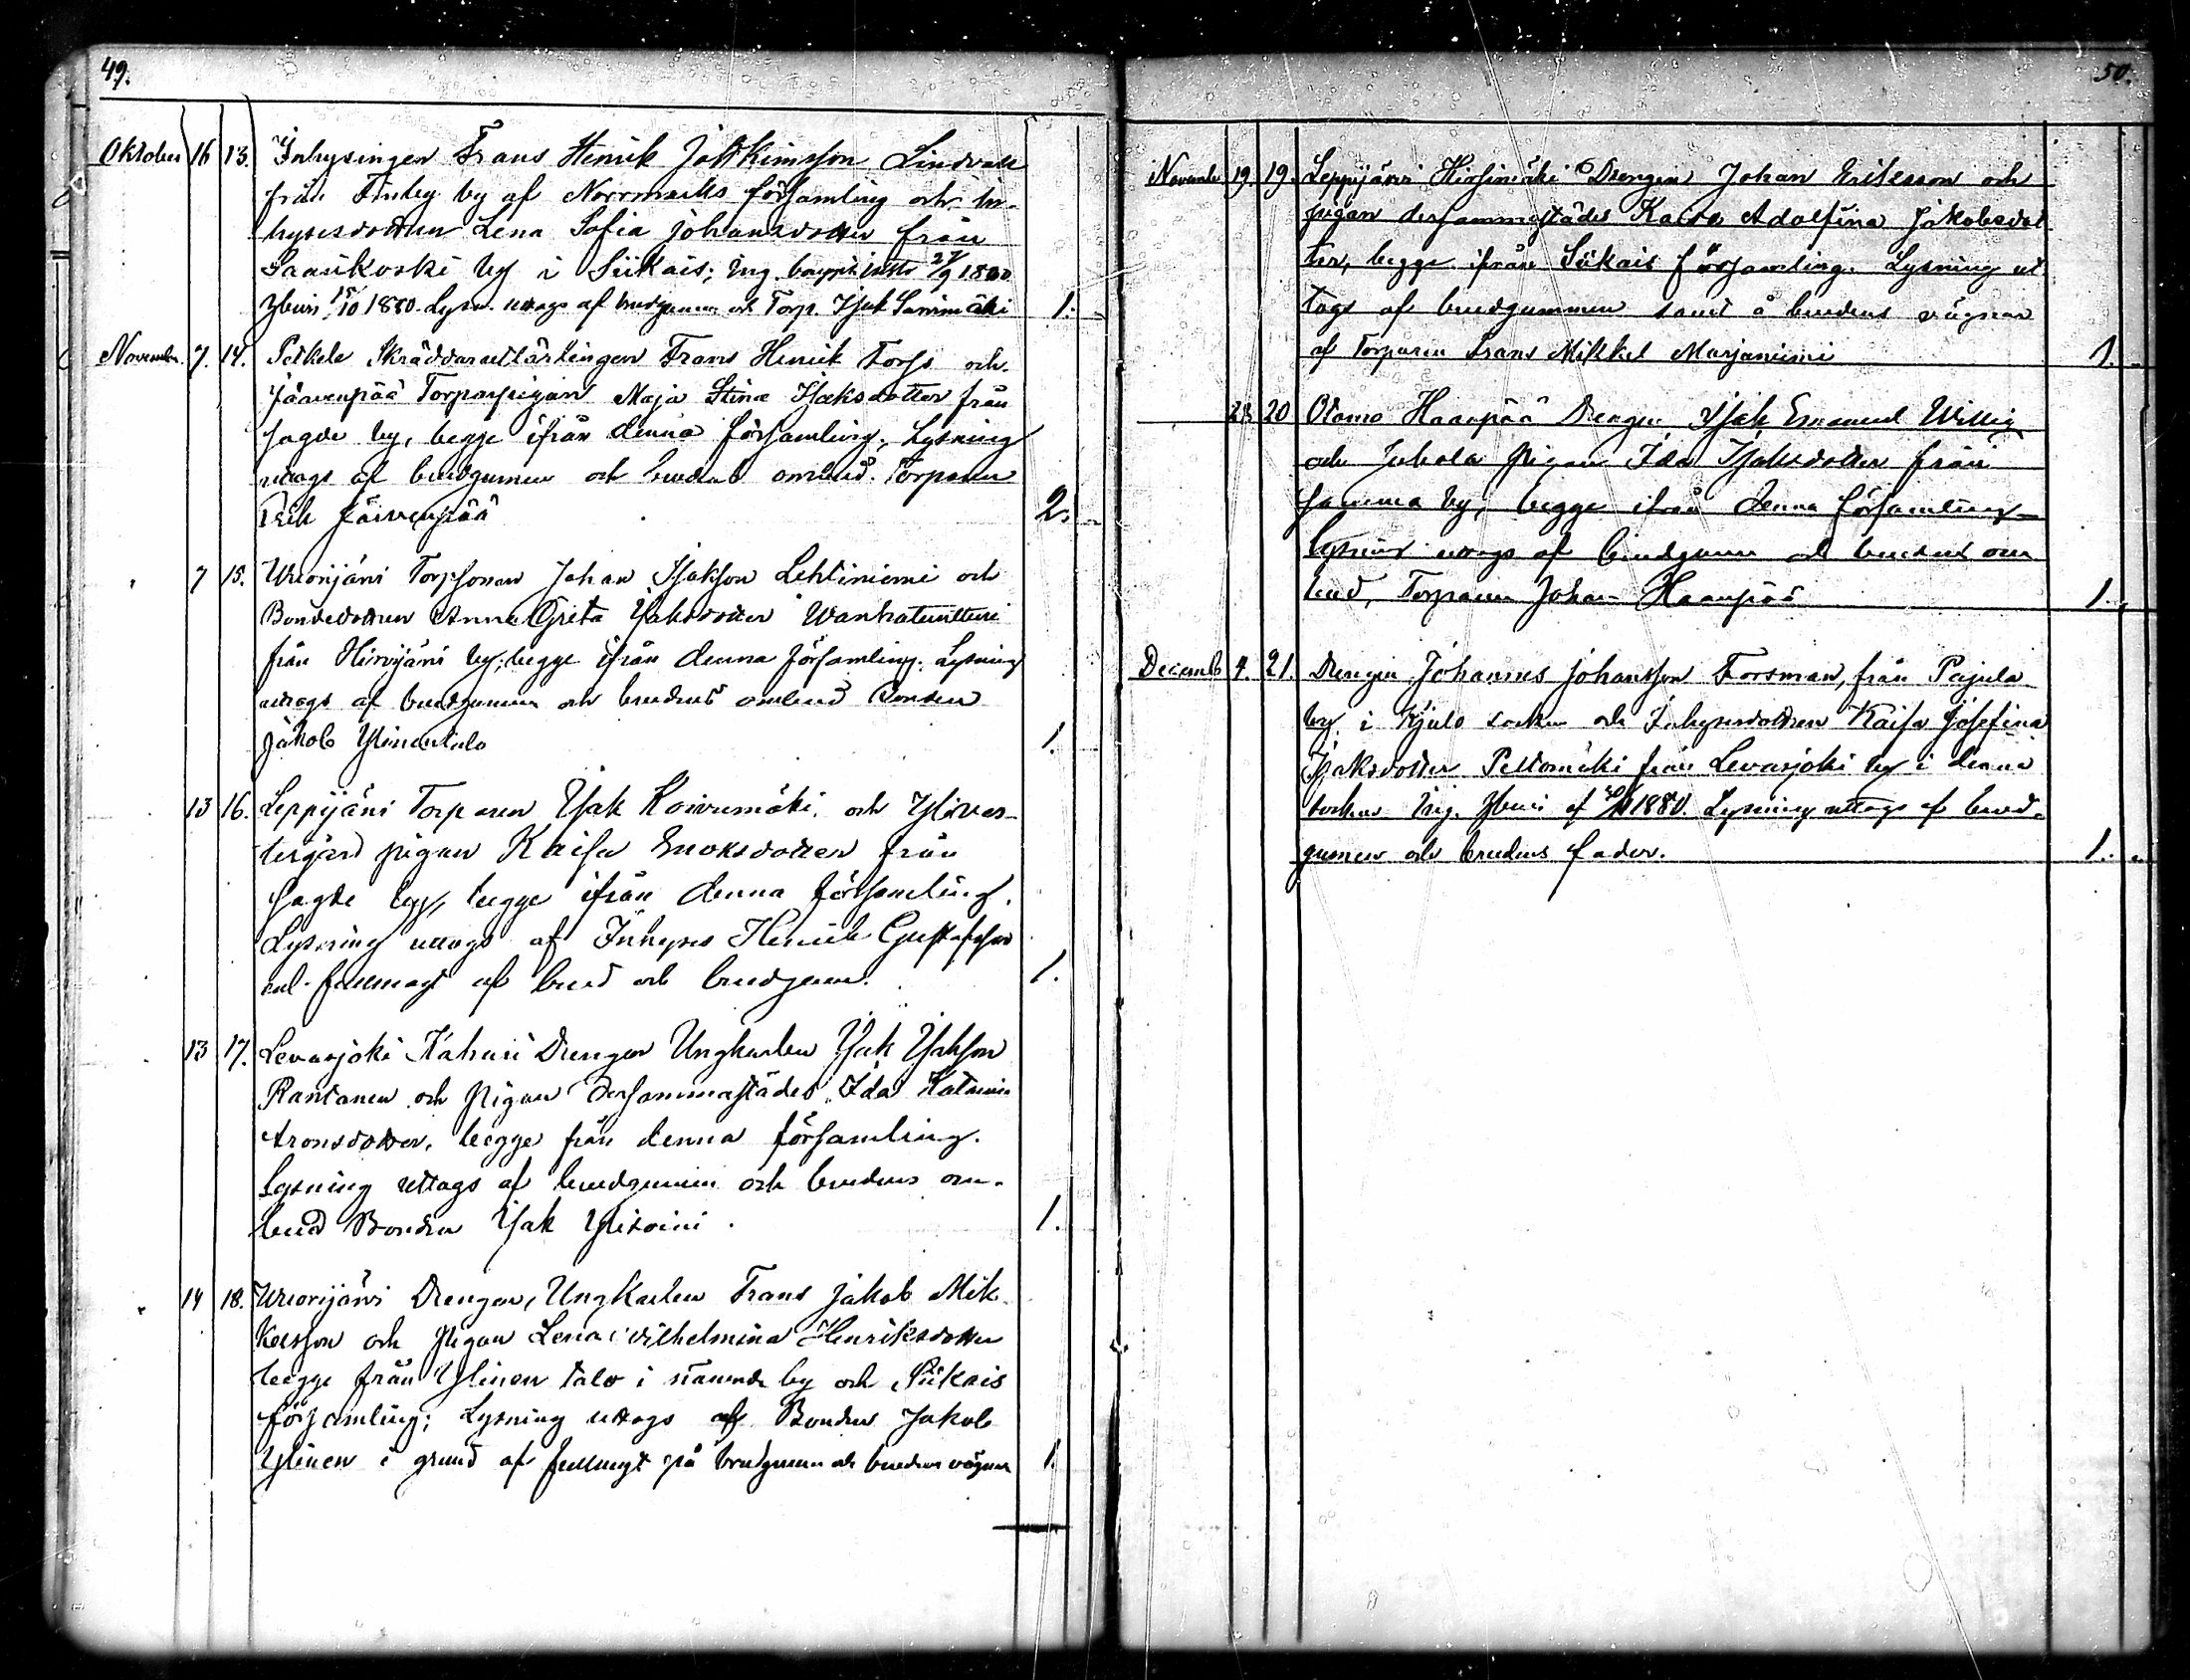 49.
Oktober 16 13. Inhysingen Frans Henrik Joakkimsson Lindvall
från Finby by af Norrmarks församling och In-
hysesdottren Lena Sofia Johansdotter från
Saarikoski by i Siikais; 27/9 1880
15/10 1880. Lysn. uttogs af brudgummen och Torp. Isak Sarimäki 1.
November 7. 14. Petkele Skräddarelärlingen Frans Henrik Forss och
Järvenpää Torparpigan Maja Stina Isaksdotter från
sagde by, begge ifrån denna församling; Lysning
uttogs af brudgummen och brudens ombud Torparen
Erik Järvenpää 2.
7 15. Wuorijärvi Torpsonen Johan Isaksson Lehtiniemi och
Bondedottren Anna Greta Isaksdotter Wanhatuitturi
från Hirvijärvi by, begge ifrån denna församling. Lysning
uttogs af brudgummen och brudens ombud Bonden
Jakob Ylinentalo 1.
13 16. Leppijärvi Torparen Isak Koivumäki och
pigan Kaisa Enoksdotter från
sagde by, begge ifrån denna församling.
Lysning uttogs af Inhyses Henrik Gustafsson
enl. fullmagt af brud och brudgum. 1.
13 17. Levasjoki Kahari Drengen Ungkarlen Isak Isaksson
Rantanen och Pigan dersammastädes Ida Katarina
Aronsdotter, begge från denna församling.
Lysning uttogs af brudgummen och brudens om-
bud Bonden Isak 1.
14 18. Wuorijärvi Drengen, Ungkarlen Frans Jakob Mik-
kelsson och Pigan Lena Vilhelmina Henriksdotter
begge från Ylinen talo i nämnde by och Siikais
församling; Lysning uttogs af Bonden Jakob
Ylinen i grund af fullmagt på brudgummens och brudens vägnar 1.
50.
November 19. 19. Leppijärvi Hirsimäki Drengen Johan Eriksson och
pigan dersammastädes Kaisa Adolfina Jakobsdot-
ter, begge ifrån Siikais församling. Lysning ut-
togs af brudgummen samt å brudens vägnar
af Torparen Frans Mikkel Marjaniemi 1.
28 20 Otamo Haanpää Drengen Isak Emanuel Willig
och Juhola Pigan Ida Isaksdotter från
samma by, begge ifrån denna församling
Lysning uttogs af brudgummen och brudens om
bud, Torparen Johan Haanpää 1.
Decemb 4. 21. Drengen Johannes Johansson Forsman, från Pajula
by i Kjulo socken och Inhysesdottren Kaisa Josefina
Isaksdotter Peltomäki från Levasjoki by i denna
socken 1880. Lysning uttogs af brud-
gummen och brudens fader. 1.